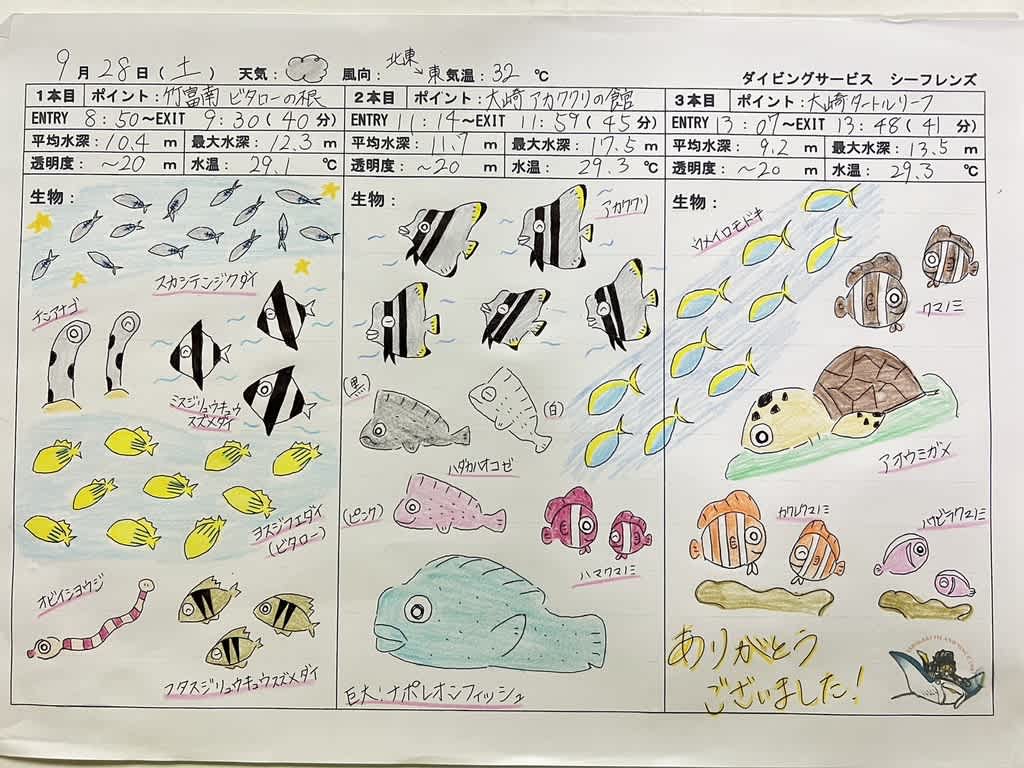 9月28日(土) 天気: 風向:北東→東 気温:32℃ ダイビングサービス シーフレンズ
1本目 ポイント:竹富南 ビタローの根
ENTRY 8:50~EXIT 9:30(40分)
平均水深:10.4m 最大水深:12.3m
透明度:~20m 水温:29.1℃
生物:
スカシテンジクダイ
チンアナゴ
ミスジリュウキュウ
スズメダイ
ヨスジフエダイ
(ビタロー)
オビイシヨウジ
フタスジリュウキュウスズメダイ
2本目 ポイント:大崎 アカククリの館
ENTRY 11:14~EXIT 11:59(45分)
平均水深:11.7m 最大水深:17.5m
透明度:~20m 水温:29.3℃
生物:
アカククリ
(黒)
(白)
ハダカハオコゼ
(ピンク)
ハマクマノミ
巨大!ナポレオンフィッシュ
3本目 ポイント:大崎タートルリーフ
ENTRY 13:07~EXIT 13:48(41分)
平均水深:9.2m 最大水深:13.5m
透明度:~20m 水温:29.3℃
生物:
ウメイロモドキ
クマノミ
アオウミガメ
カクレクマノミ
ハナビラクマノミ
ありがとう
ございました!